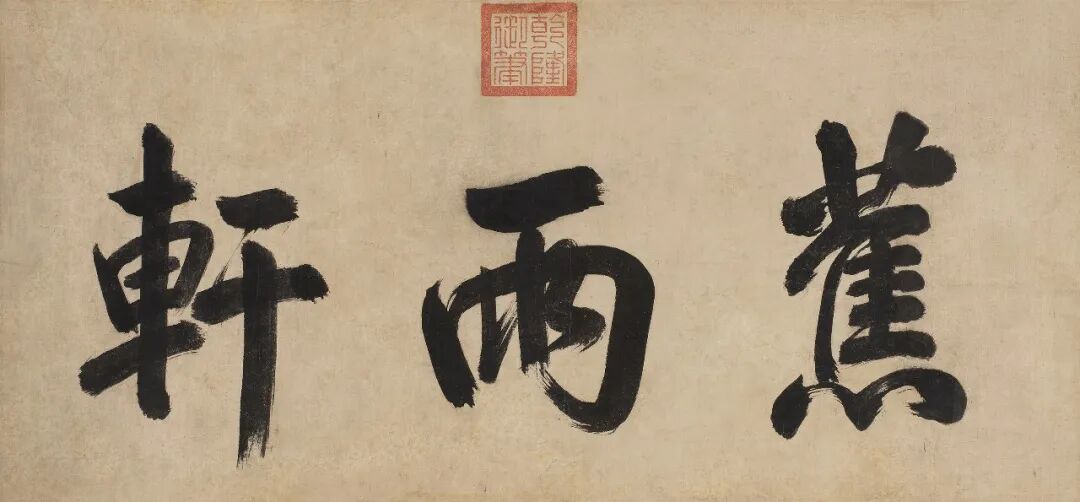 乾隆御筆
蕉雨軒